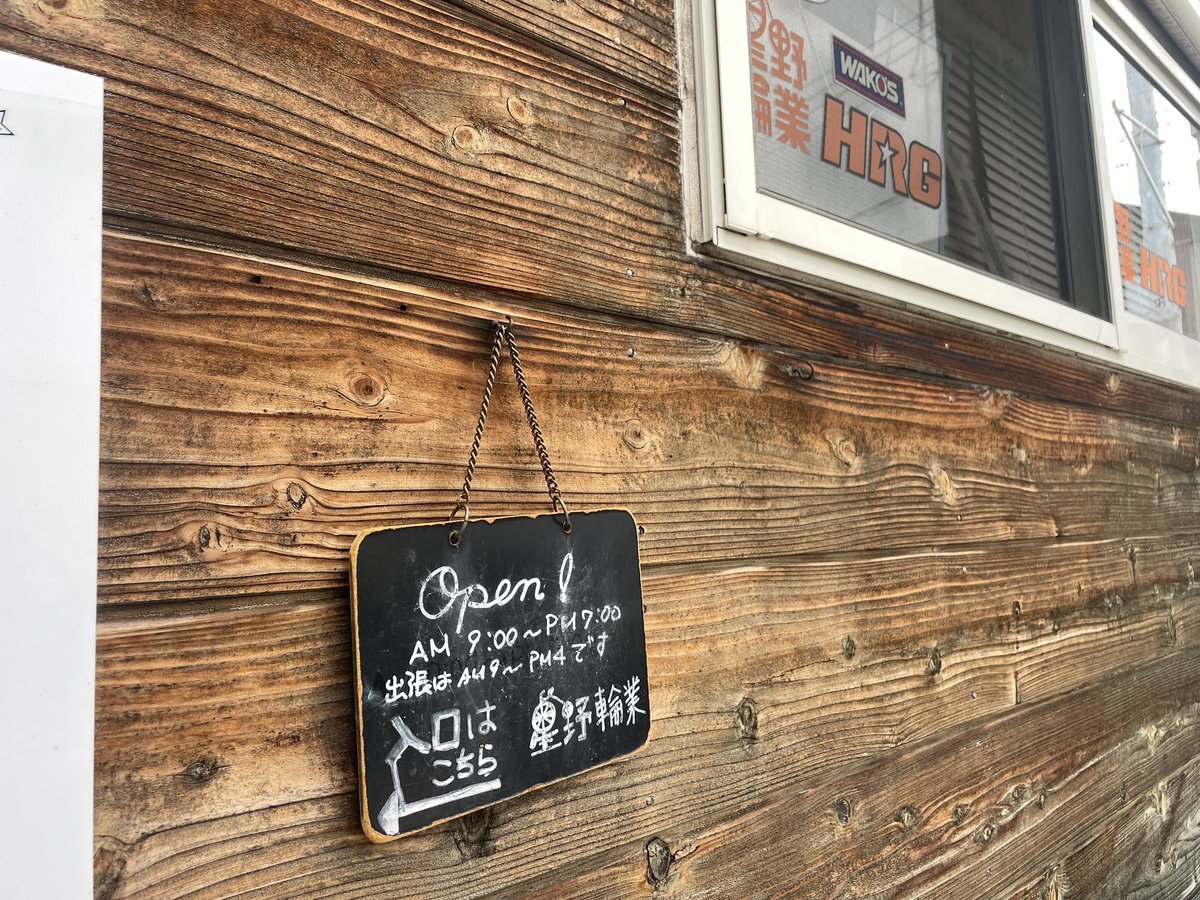 Open!
AM 9:00～PM7:00
出張は AM9～PM4です
入口は
こちら
星野輪業
WAKO'S
HRG
野
輪業
HRG
業